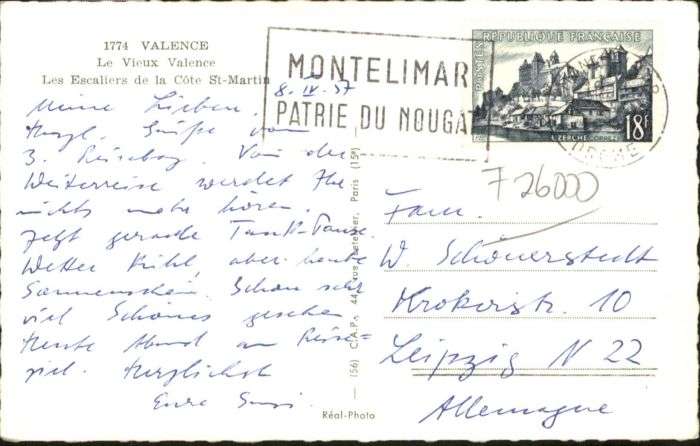 1774 VALENCE
Le Vieux Valence
Les Escaliers de la Côte St-Martin
MONTELIMAR
PATRIE DU NOUGAT
POSTES
REPUBLIQUE FRANÇAISE
UZERCHE-CORREZE
18F
DROME
8. IV. 57
Meine Lieben.
Herzl. Grüße vom
3. Reisetag. Von der
Weiterreise werdet Ihr
nichts mehr hören.
Jetzt gerade Tank-Pause.
Wetter kühl, aber heute
Sonnenschein. Schon sehr
viel Schönes gesehen.
Heute Abend am Reise=
ziel. Herzlichst
Eure
(56) C.A.P., 44, rue Letellier, Paris (15e)
Réal-Photo
F 26000
Fam.
W. Schönerstedt
Krokerstr. 10
Leipzig N 22
Allemagne